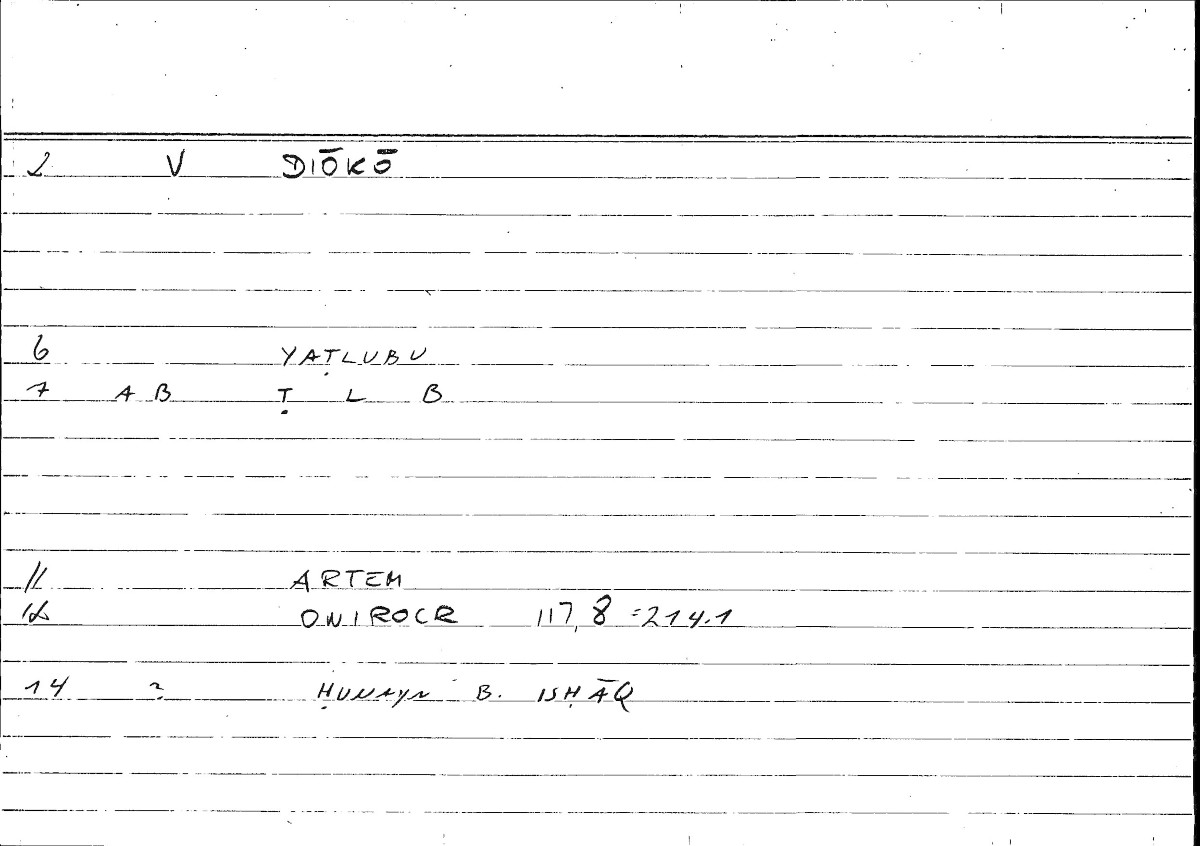 2 V DIŌKŌ
6 YAṬLUBU
7 A B Ṭ L B
11 ARTEM
12 ONIROCR 117,8 = 214.1
14 ? ḤUNAYN B. ISḤĀQ